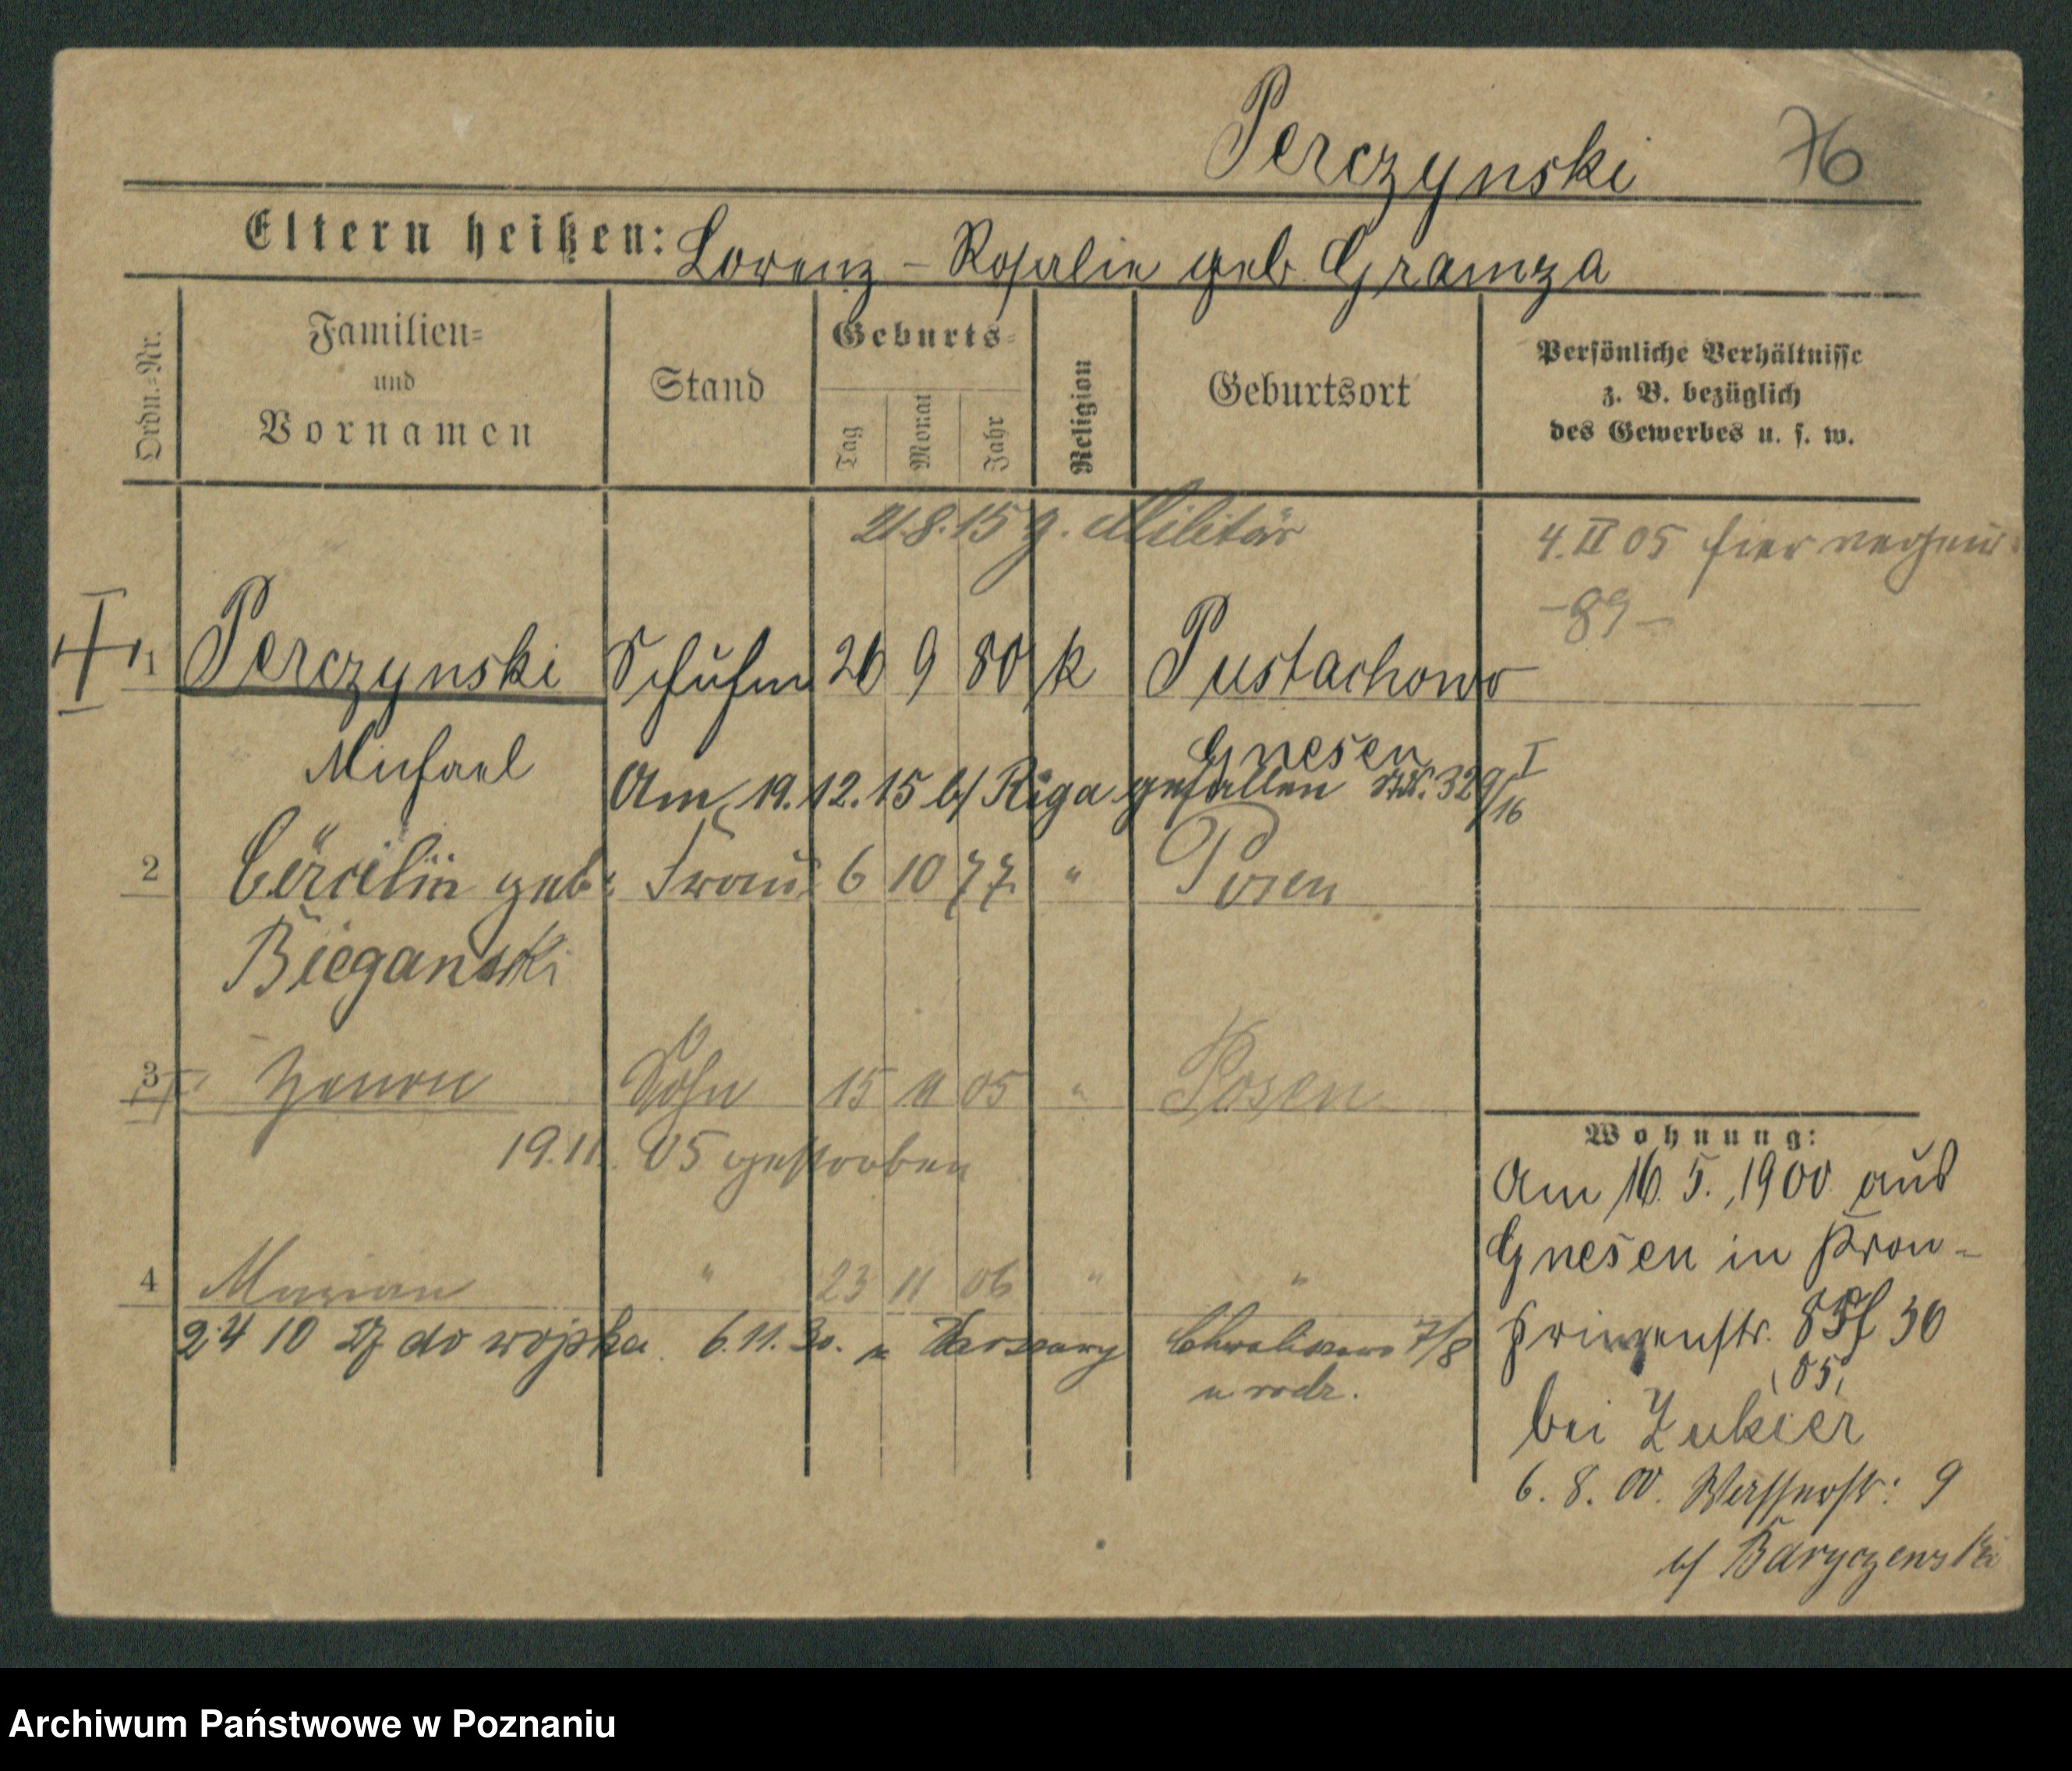 Perczynski 76
Eltern heißen: Lorenz – Rosalie geb. Gramza
Ordn.=Nr.
Familien=
und
Vornamen
Stand
Geburts=
Tag
Monat
Jahr
Religion
Geburtsort
Persönliche Verhältnisse
z. B. bezüglich
des Gewerbes u. s. w.
21.8.15 z. Militär
4.II 05 hier
-89-
1 Perczynski Schuhm 26 9 80 k Pustachowo
Michael Gnesen
Am 19.12.15 b/ Riga gefallen 329/16 I
2 Cäcilie geb. Frau 6 10 77 " Posen
Bieganski
3 Zenon Sohn 15 11 05 " Posen
19.11. 05 gestorben
4 Marian " 23 11 06 " "
24 10 27 do wojska 6.11.30. z Warszawy Chwaliszewo 7/8
u rodz.
Wohnung:
Am 16. 5. 1900 aus
Gnesen in Kron-
prinzenstr. 30
05
bei Zukier
6. 8. 00. Wasserstr: 9
b/ Baryczenski
Archiwum Państwowe w Poznaniu